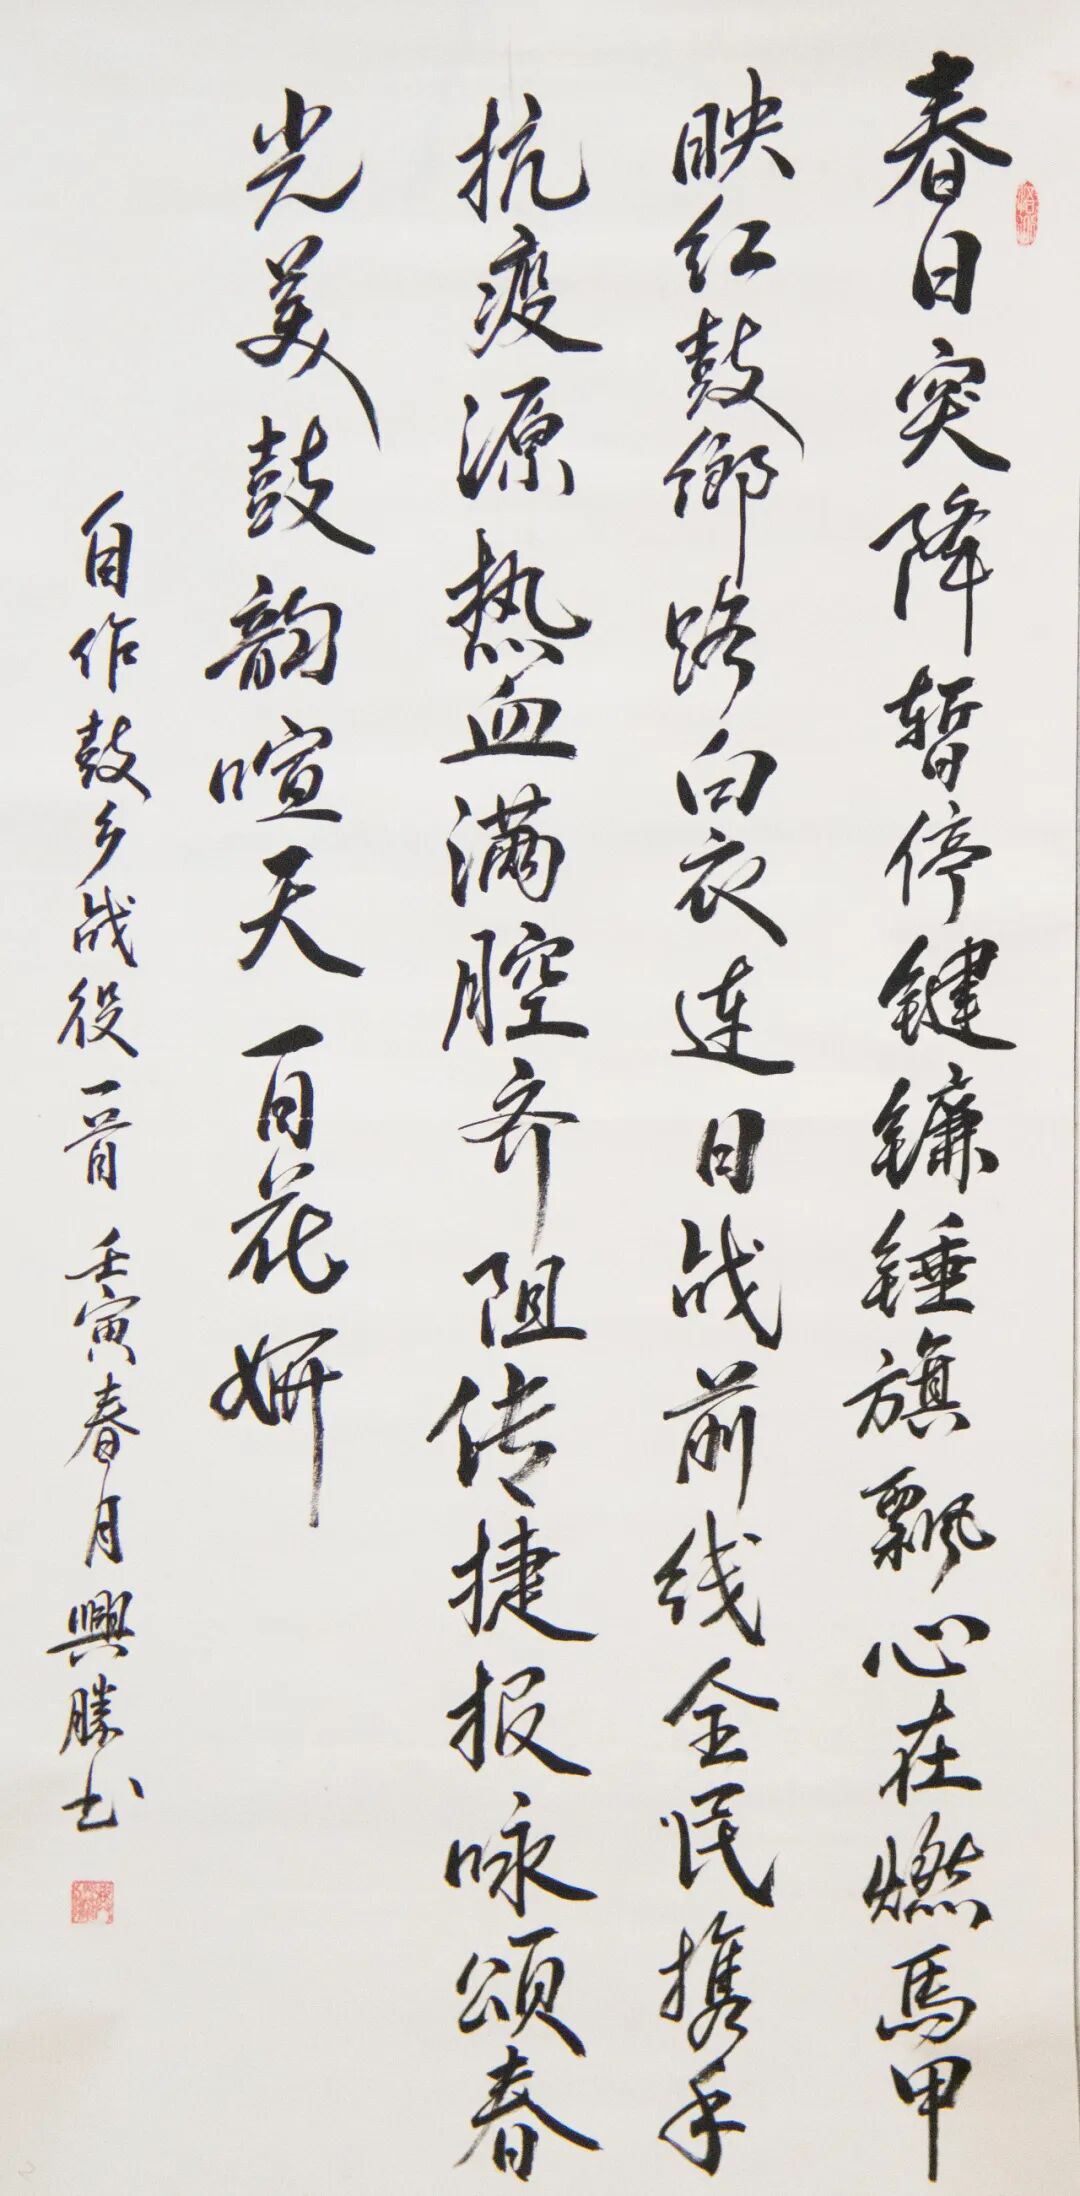 春日突降暂停键镰锤旗飘心在燃馬甲
映红鼓鄉路白衣连日战前线全民携手
抗疫源热血满腔齐阻传捷报咏颂春
光美鼓韵喧天百花妍
自作鼓乡战役一首壬寅春月興勝书